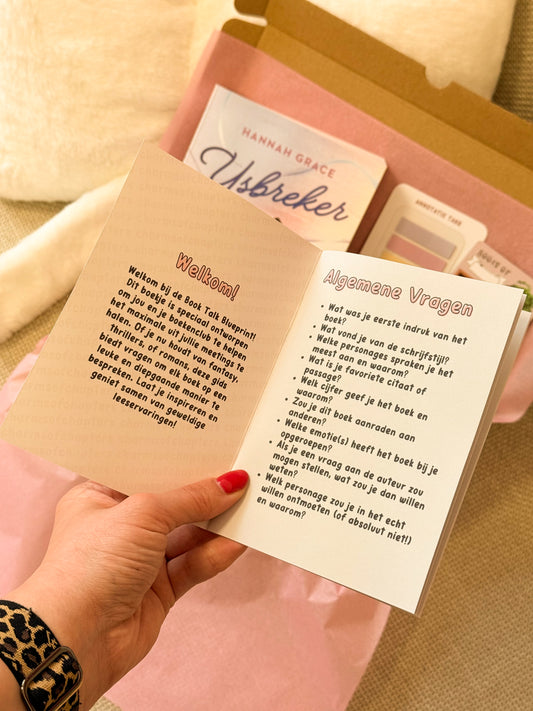 HANNAH GRACE
IJsbreker
ANNOTATIE TABS
Welkom!
Welkom bij de Book Talk Blueprint!
Dit boekje is speciaal ontworpen
om jou en je boekenclub te helpen
het maximale uit jullie meetings te
halen. Of je nu houdt van fantasy,
thrillers, of romans, deze gids
biedt vragen om elk boek op een
leuke en diepgaande manier te
bespreken. Laat je inspireren en
geniet samen van geweldige
leeservaringen!
Algemene Vragen
• Wat was je eerste indruk van het
boek?
• Wat vond je van de schrijfstijl?
• Welke personages spraken je het
meest aan en waarom?
• Wat is je favoriete citaat of
passage?
• Welk cijfer geef je het boek en
waarom?
• Zou je dit boek aanraden aan
anderen?
• Welke emotie(s) heeft het boek bij je
opgeroepen?
• Als je een vraag aan de auteur zou
mogen stellen, wat zou je dan willen
weten?
• Welk personage zou je in het echt
willen ontmoeten (of absoluut niet!)
en waarom?